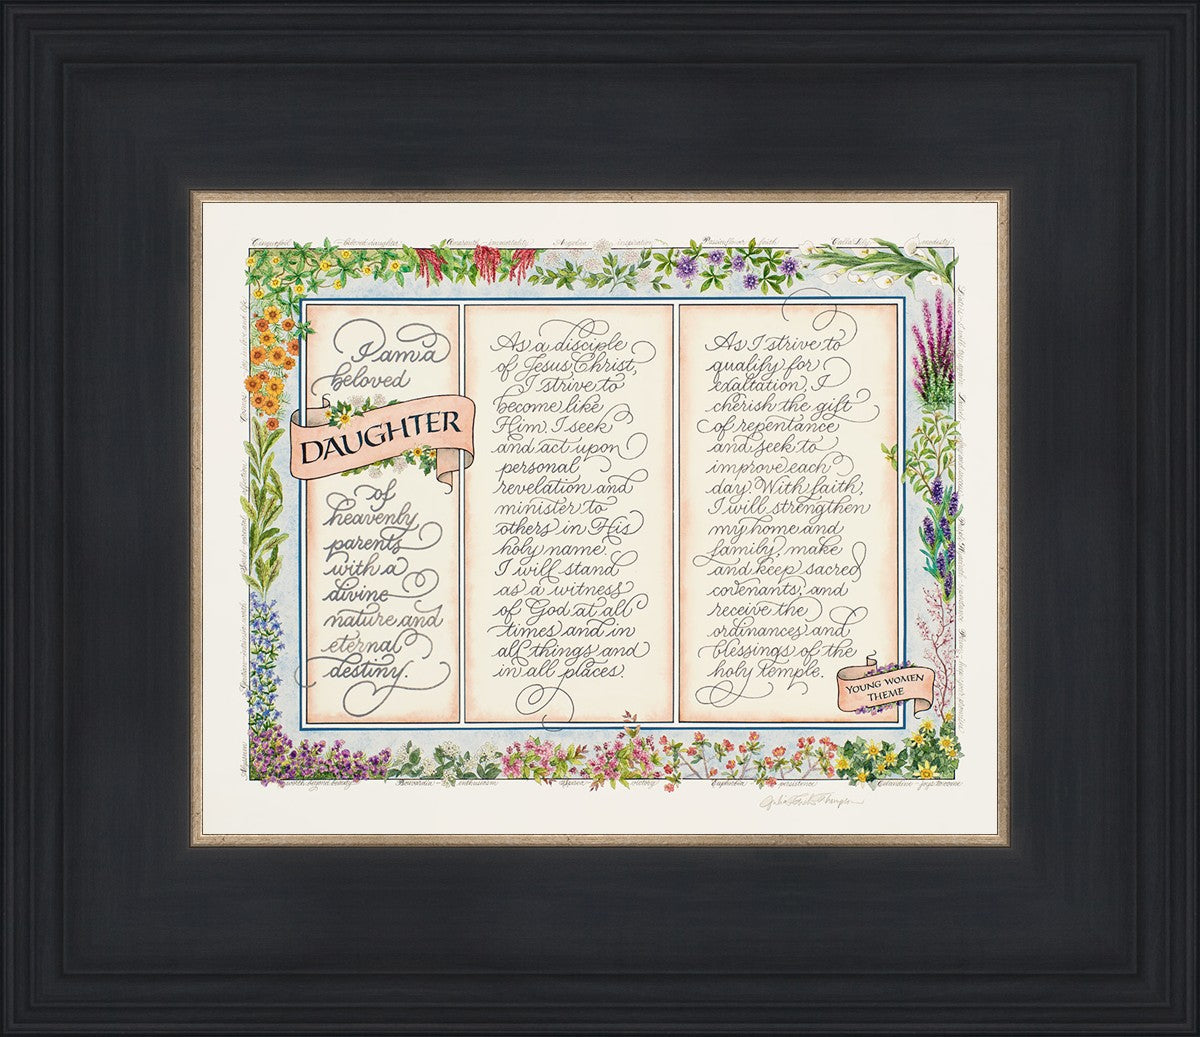 Cinquefoil – beloved daughter Amaranth – immortality Angelica – inspiration Passionflower – faith Calla Lily – modesty
I am a
beloved
DAUGHTER
of
heavenly
parents
with a
divine
nature and
eternal
destiny.
As a disciple
of Jesus Christ,
I strive to
become like
Him. I seek
and act upon
personal
revelation and
minister to
others in His
holy name.
I will stand
as a witness
of God at all
times and in
all things and
in all places.
As I strive to
qualify for
exaltation, I
cherish the gift
of repentance
and seek to
improve each
day. With faith,
I will strengthen
my home and
family, make
and keep sacred
covenants, and
receive the
ordinances and
blessings of the
holy temple.
YOUNG WOMEN
THEME
Bouvardia – enthusiasm Euphorbia – persistence Celandine – joys to come